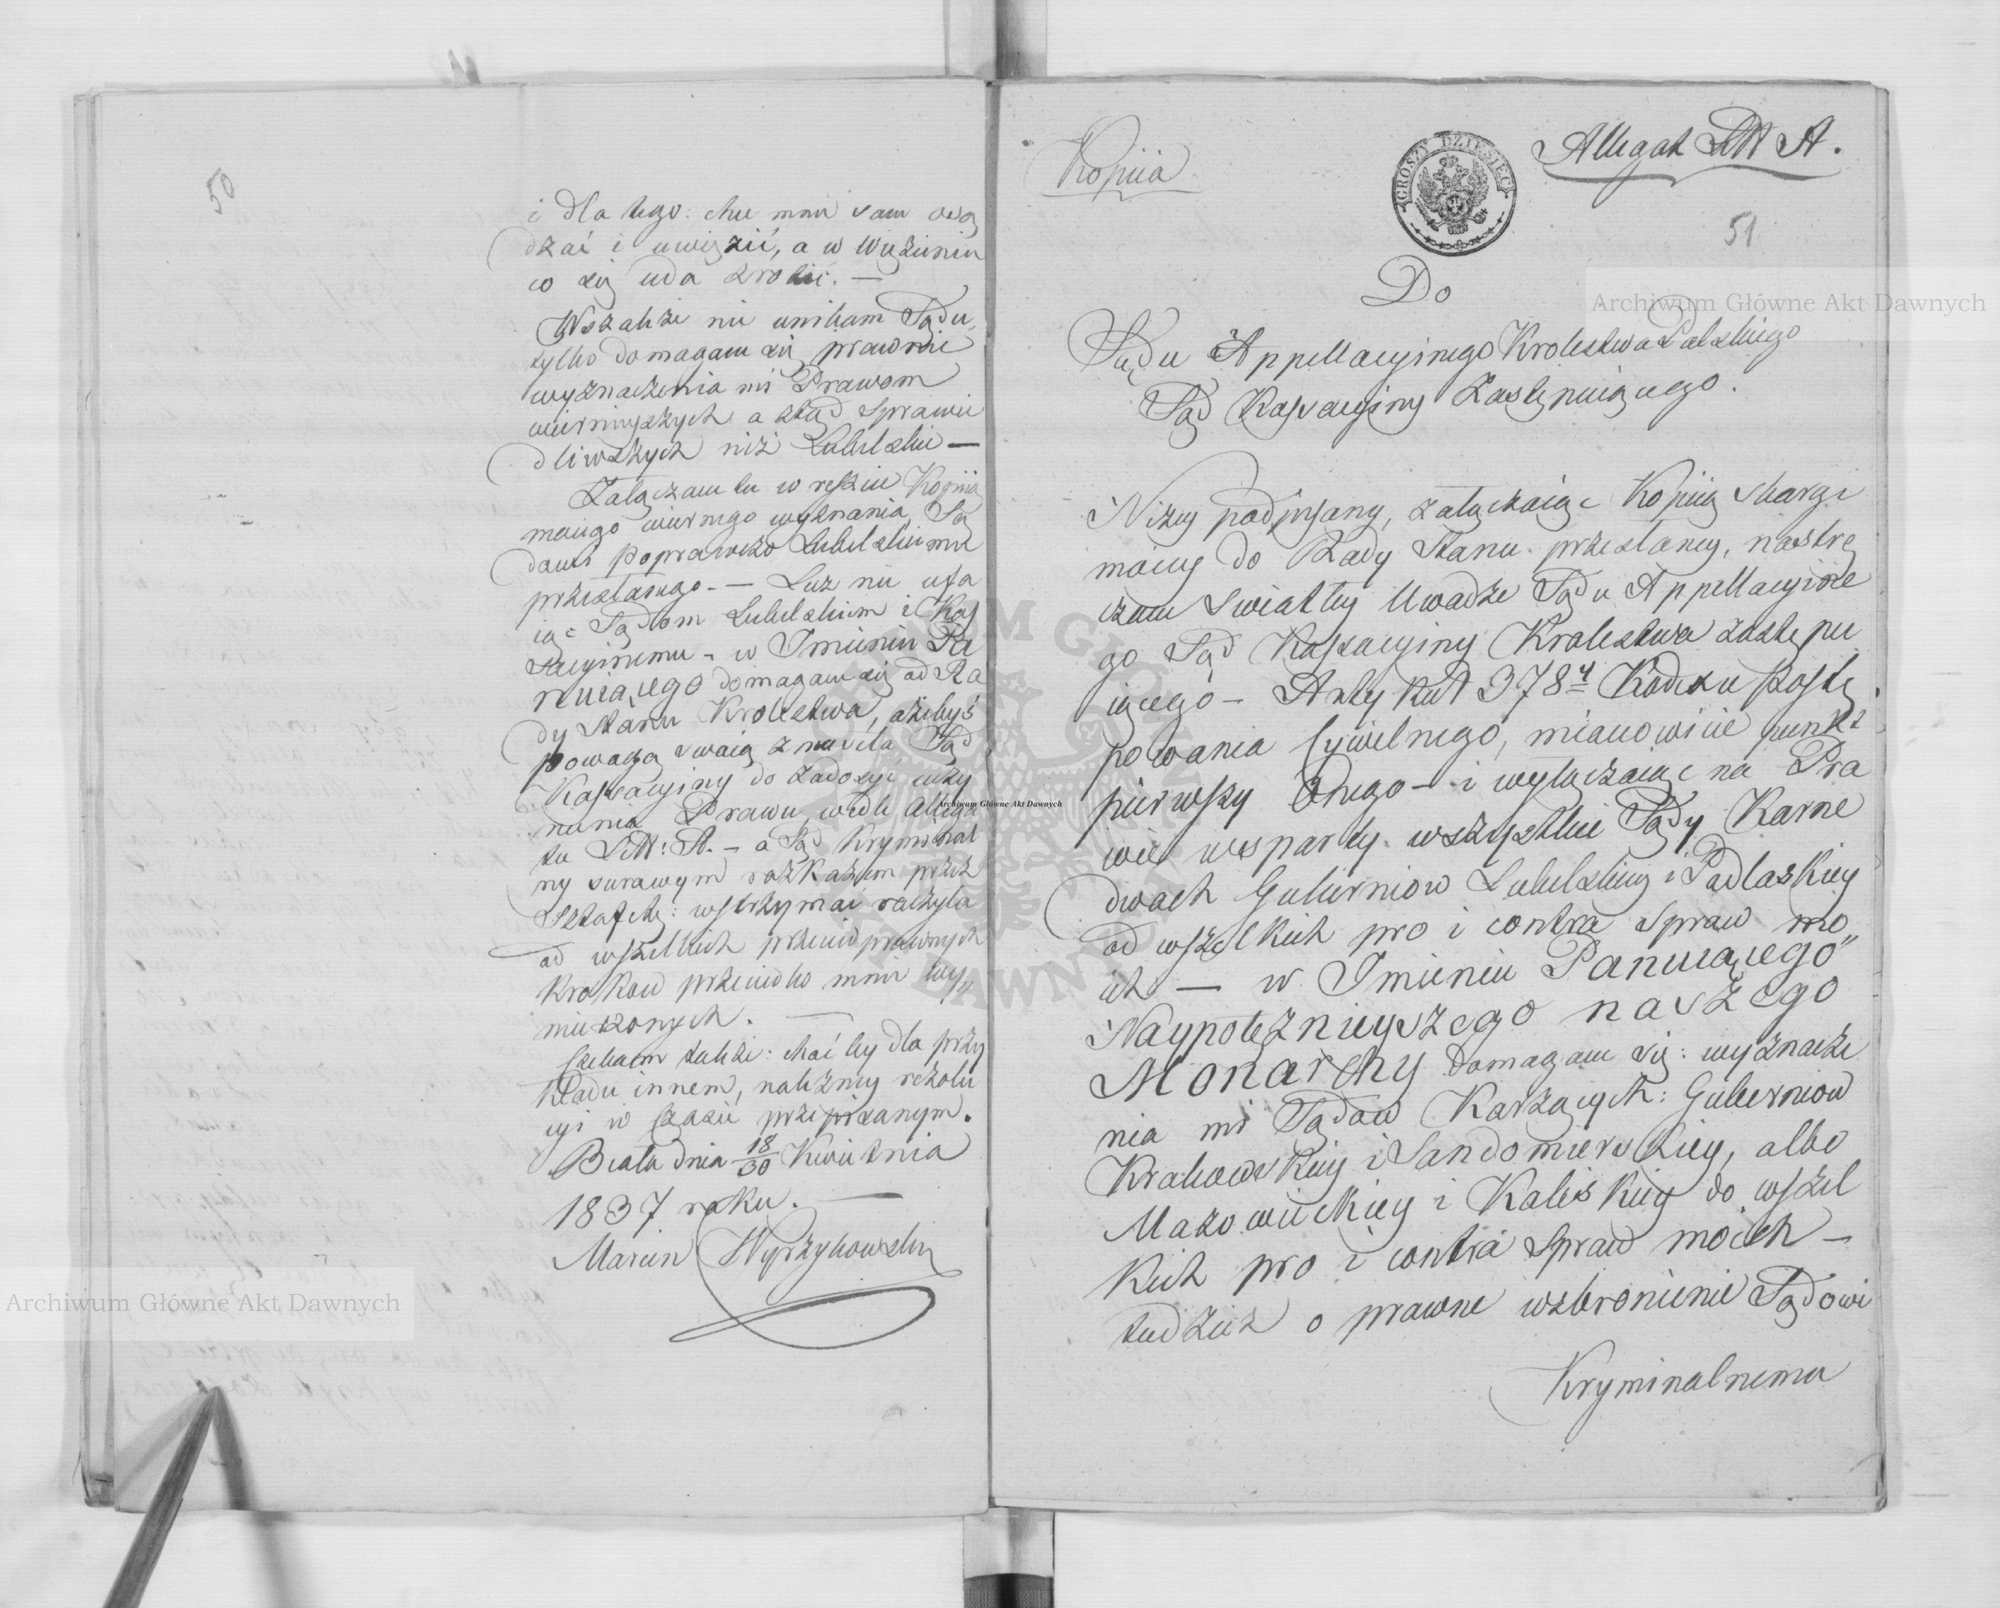 50
i dla tego: chce mnie sam osą
dzać i uwięzić, a w więzieniu
co się uda zrobić. —
Wszakże nie unikam Sądu,
tylko domagam się prawnie
wyznaczenia mi Prawom
wierniejszych a ztąd sprawie
dliwszych niż Lubelskie —
Załączam tu w reście Kopiią
moiego wiernego wyznania Są
dowi poprawczo Lubelskiemu
przesłanego. — Lecz nie ufa
iąc Sądom Lubelskim i Kas
sacyinemu — w Imieniu Pa
nuiącego domagam się od Ra
dy Stanu Krolestwa, ażebyś
powagą swaią zmusiła Sąd
Kassacyiny do zadosyć uczy
nienia Prawu, wedle allega
tu Litt: A. — a Sąd Kryminal
ny surawym rozkazem przez
Sztafetę: wstrzymać raczyła
od wszelkich przeciwprawnych
krokow przeciwko mnie wy„
mierzonych. —
Czekam także: choć by dla przy
kładu innem, należney rezolu
cyi w czasie przepisanym.
Biała dnia 18/30 Kwietnia
1837 roku. —
Marcin Wyrzykowski
Kopiia
GROSZY DZIESIĘĆ
Allegat Litt A.
51
Do
Sądu Appellacyinego Krolestwa Polskiego
Sąd Kassacyiny Zastępuiącego.
Niżey podpisany, załączaiąc Kopiią skargi
moiey do Rady Stanu przesłaney, nastrę
czam Swiatłey Uwadze Sądu Appellacyine
go Sąd Kassacyiny Krolestwa zastępu
iącego — Artykuł 378y Kodexu Postę
powania Cywilnego, mianowicie punkt
pierwszy Onego — i wyłączaiąc na Pra
wie wsparty wszystkie Sądy Karne
dwoch Guberniow Lubelskiey i Podlaskiey
od wszelkich pro i contra Spraw mo„
ich — w Imieniu Panuiącego
Naypotężnieyszego naszego
Monarchy domagam się: wyznacze
nia mi Sądow Karzących: Guberniow
Krakowskiey i Sandomierskiey, albo
Mazowieckiey i Kaliskiey do wszel
kich pro i contra Spraw moich —
tudzież o prawne wzbronienie Sądowi
Kryminalnemu
Archiwum Główne Akt Dawnych
Archiwum Główne Akt Dawnych
Archiwum Główne Akt Dawnych